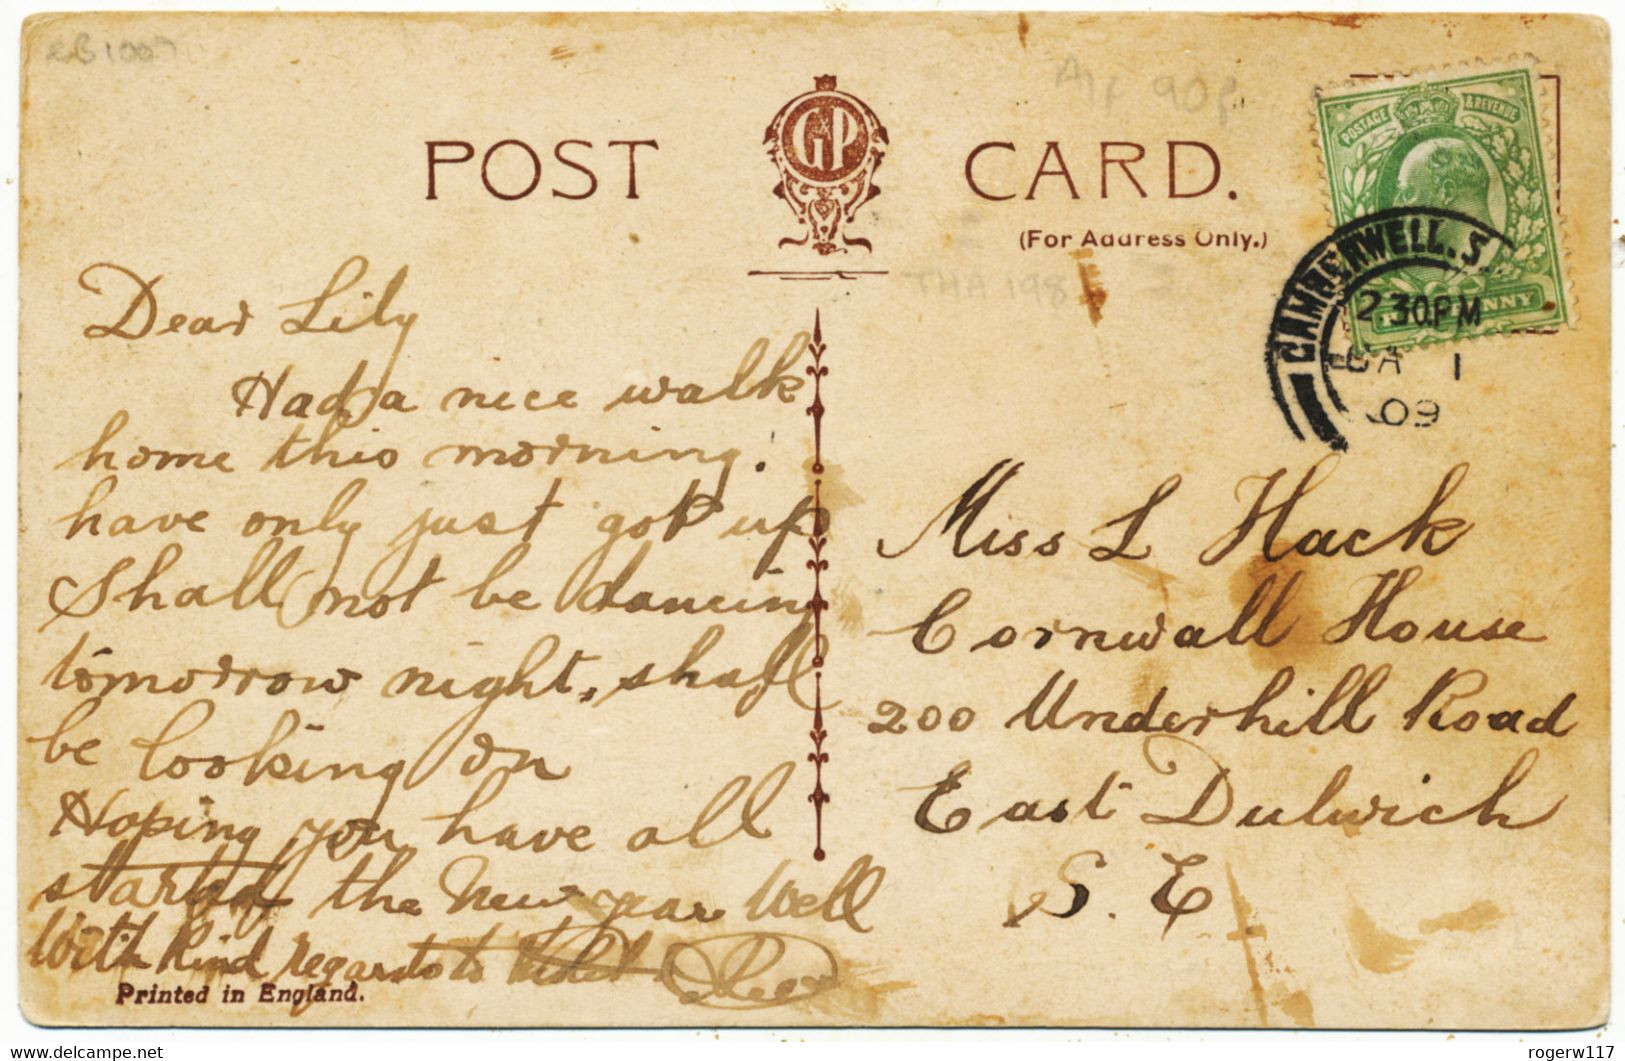 POST CARD.
G P
(For Address Only.)
POSTAGE & REVENUE
CAMBERWELL. S.
2.30.PM
JA 1
09
Dear Lily
Had a nice walk
home this morning.
have only just got up
Shall not be dancing
tomorrow night, shall
be looking on
Hoping you have all
started the New year Well
With Kind regards to
Printed in England.
Miss L Hack
Cornwall House
200 Underhill Road
East Dulwich
S. E
delcampe.net
rogerw117